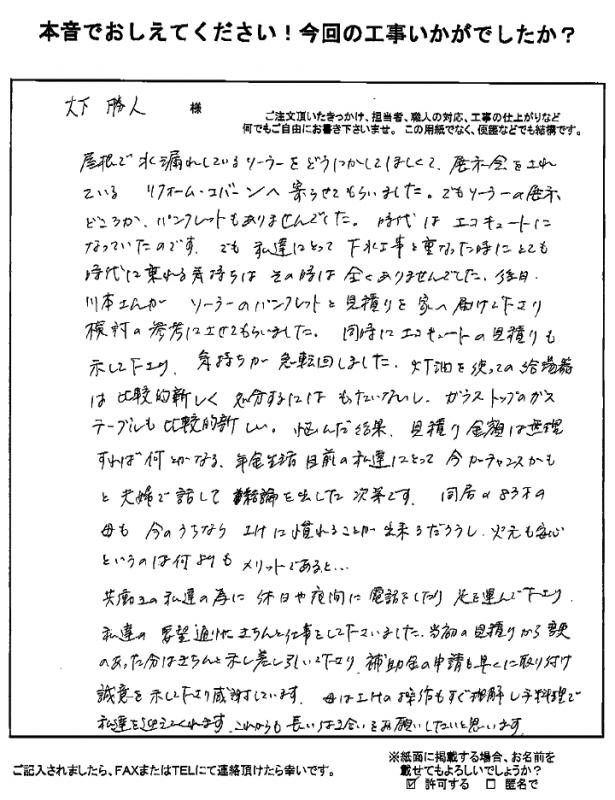 本音でおしえてください！今回の工事いかがでしたか？
大下 勝人 様
ご注文頂いたきっかけ、担当者、職人の対応、工事の仕上がりなど
何でもご自由にお書き下さいませ。この用紙でなく、便箋などでも結構です。
屋根で水漏れしているソーラーをどうにかしてほしくて、展示会をされ
ている リフォーム・エバーンへ寄らせてもらいました。でもソーラーの展示
どころか、パンフレットもありませんでした。 時代はエコキュートに
なっていたのです。でも 私達にとって 下水工事と重なった時にとても
時代に乗れる気持ちは その時は全くありませんでした。後日
川本さんが ソーラーのパンフレットと見積りを家へ届けて下さり
検討の参考にさせてもらいました。 同時にエコキュートの見積りも
示して下さり、気持ちが急転回しました。灯油を使っての給湯器
は比較的新しく処分するには もったいないし、ガラストップのガス
テーブルも比較的新しい。悩んだ結果、見積り金額は無理
すれば何とかなる、年金生活目前の私達にとって今がチャンスかも
と夫婦で話して 結論を出した次第です。 同居の83才の
母も 今のうちなら IHに慣れることが出来るだろうし、火元も安心
というのは何よりもメリットであると…
共働きの私達の為に 休日や夜間に電話をしたり足を運んで下さり、
私達の要望通りにきちんと仕事をして下さいました。当初の見積りから変更
のあった分はきちんと示し差し引いて下さり、補助金の申請も早くに取り付け
誠意を示して下さり感謝しています。 母はIHの操作もすぐ理解し手料理で
私達を迎えてくれます。これからも長いお付き合いをお願いしたいと思います。
ご記入されましたら、FAXまたはTELにて連絡頂けたら幸いです。
※紙面に掲載する場合、お名前を
載せてもよろしいでしょうか？
☑ 許可する □ 匿名で